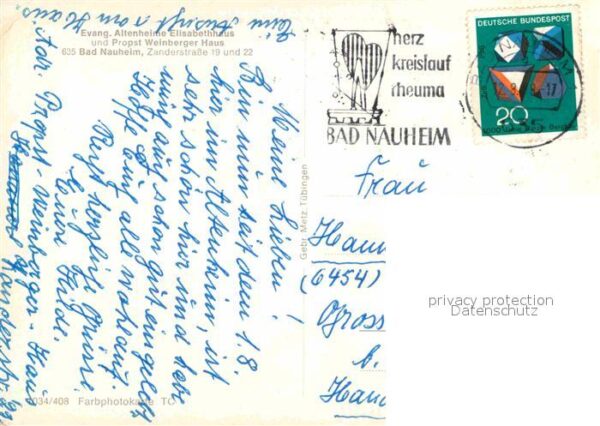 Eine Ansicht v am Haus
Evang. Altenheime Elisabethhaus
und Propst Weinberger Haus
635 Bad Nauheim, Zanderstraße 19 und 22
Meine Lieben!
Bin nun seit dem 1.8.
hier im Altenheim, ist
sehr schön hier und habe
mich auch schon gut eingelebt
Hoffe Euch all wohlauf.
Recht herzliche Grüsse
Eure Hilde.
Adr. Propst-Weinberger-Haus
Zanderstr.
2034/408 Farbphotokarte TC
Gebr. Metz Tübingen
herz
kreislauf
rheuma
BAD NAUHEIM
DEUTSCHE BUNDESPOST
20
Frau
(6454)
Gross
b.
privacy protection
Datenschutz